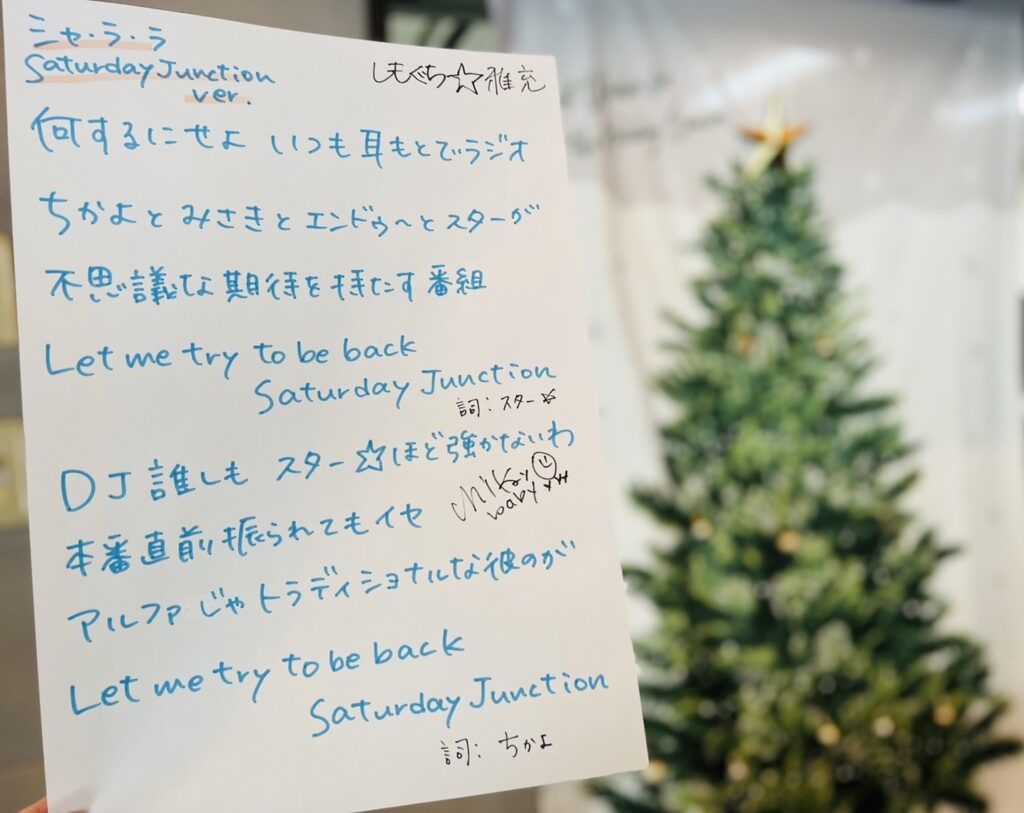 シャ・ラ・ラ
Saturday Junction
ver.
しもぐち☆雅充
何するにせよ いつも 耳もとでラジオ
ちかよと みさきと エンドゥ〜と スターが
不思議な期待を持たす番組
Let me try to be back
Saturday Junction
詞：スター☆
DJ 誰しも スター☆ほど強かないわ
Mikey
baby
本番直前振られてもイセ
アルファじゃトラディショナルな彼のが
Let me try to be back
Saturday Junction
詞：ちかよ